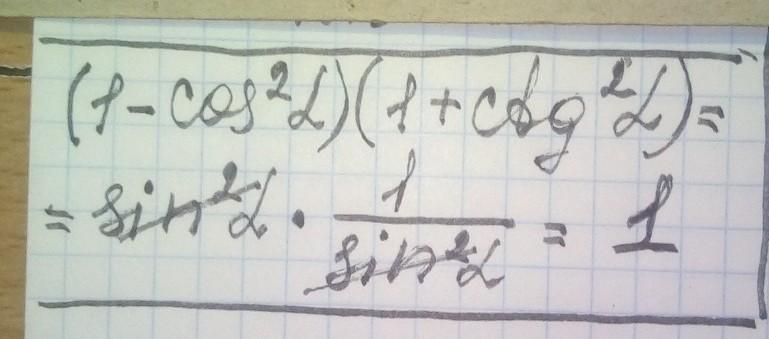 (1-cos²α)(1+ctg²α)=
=sin²α·1/sin²α=1